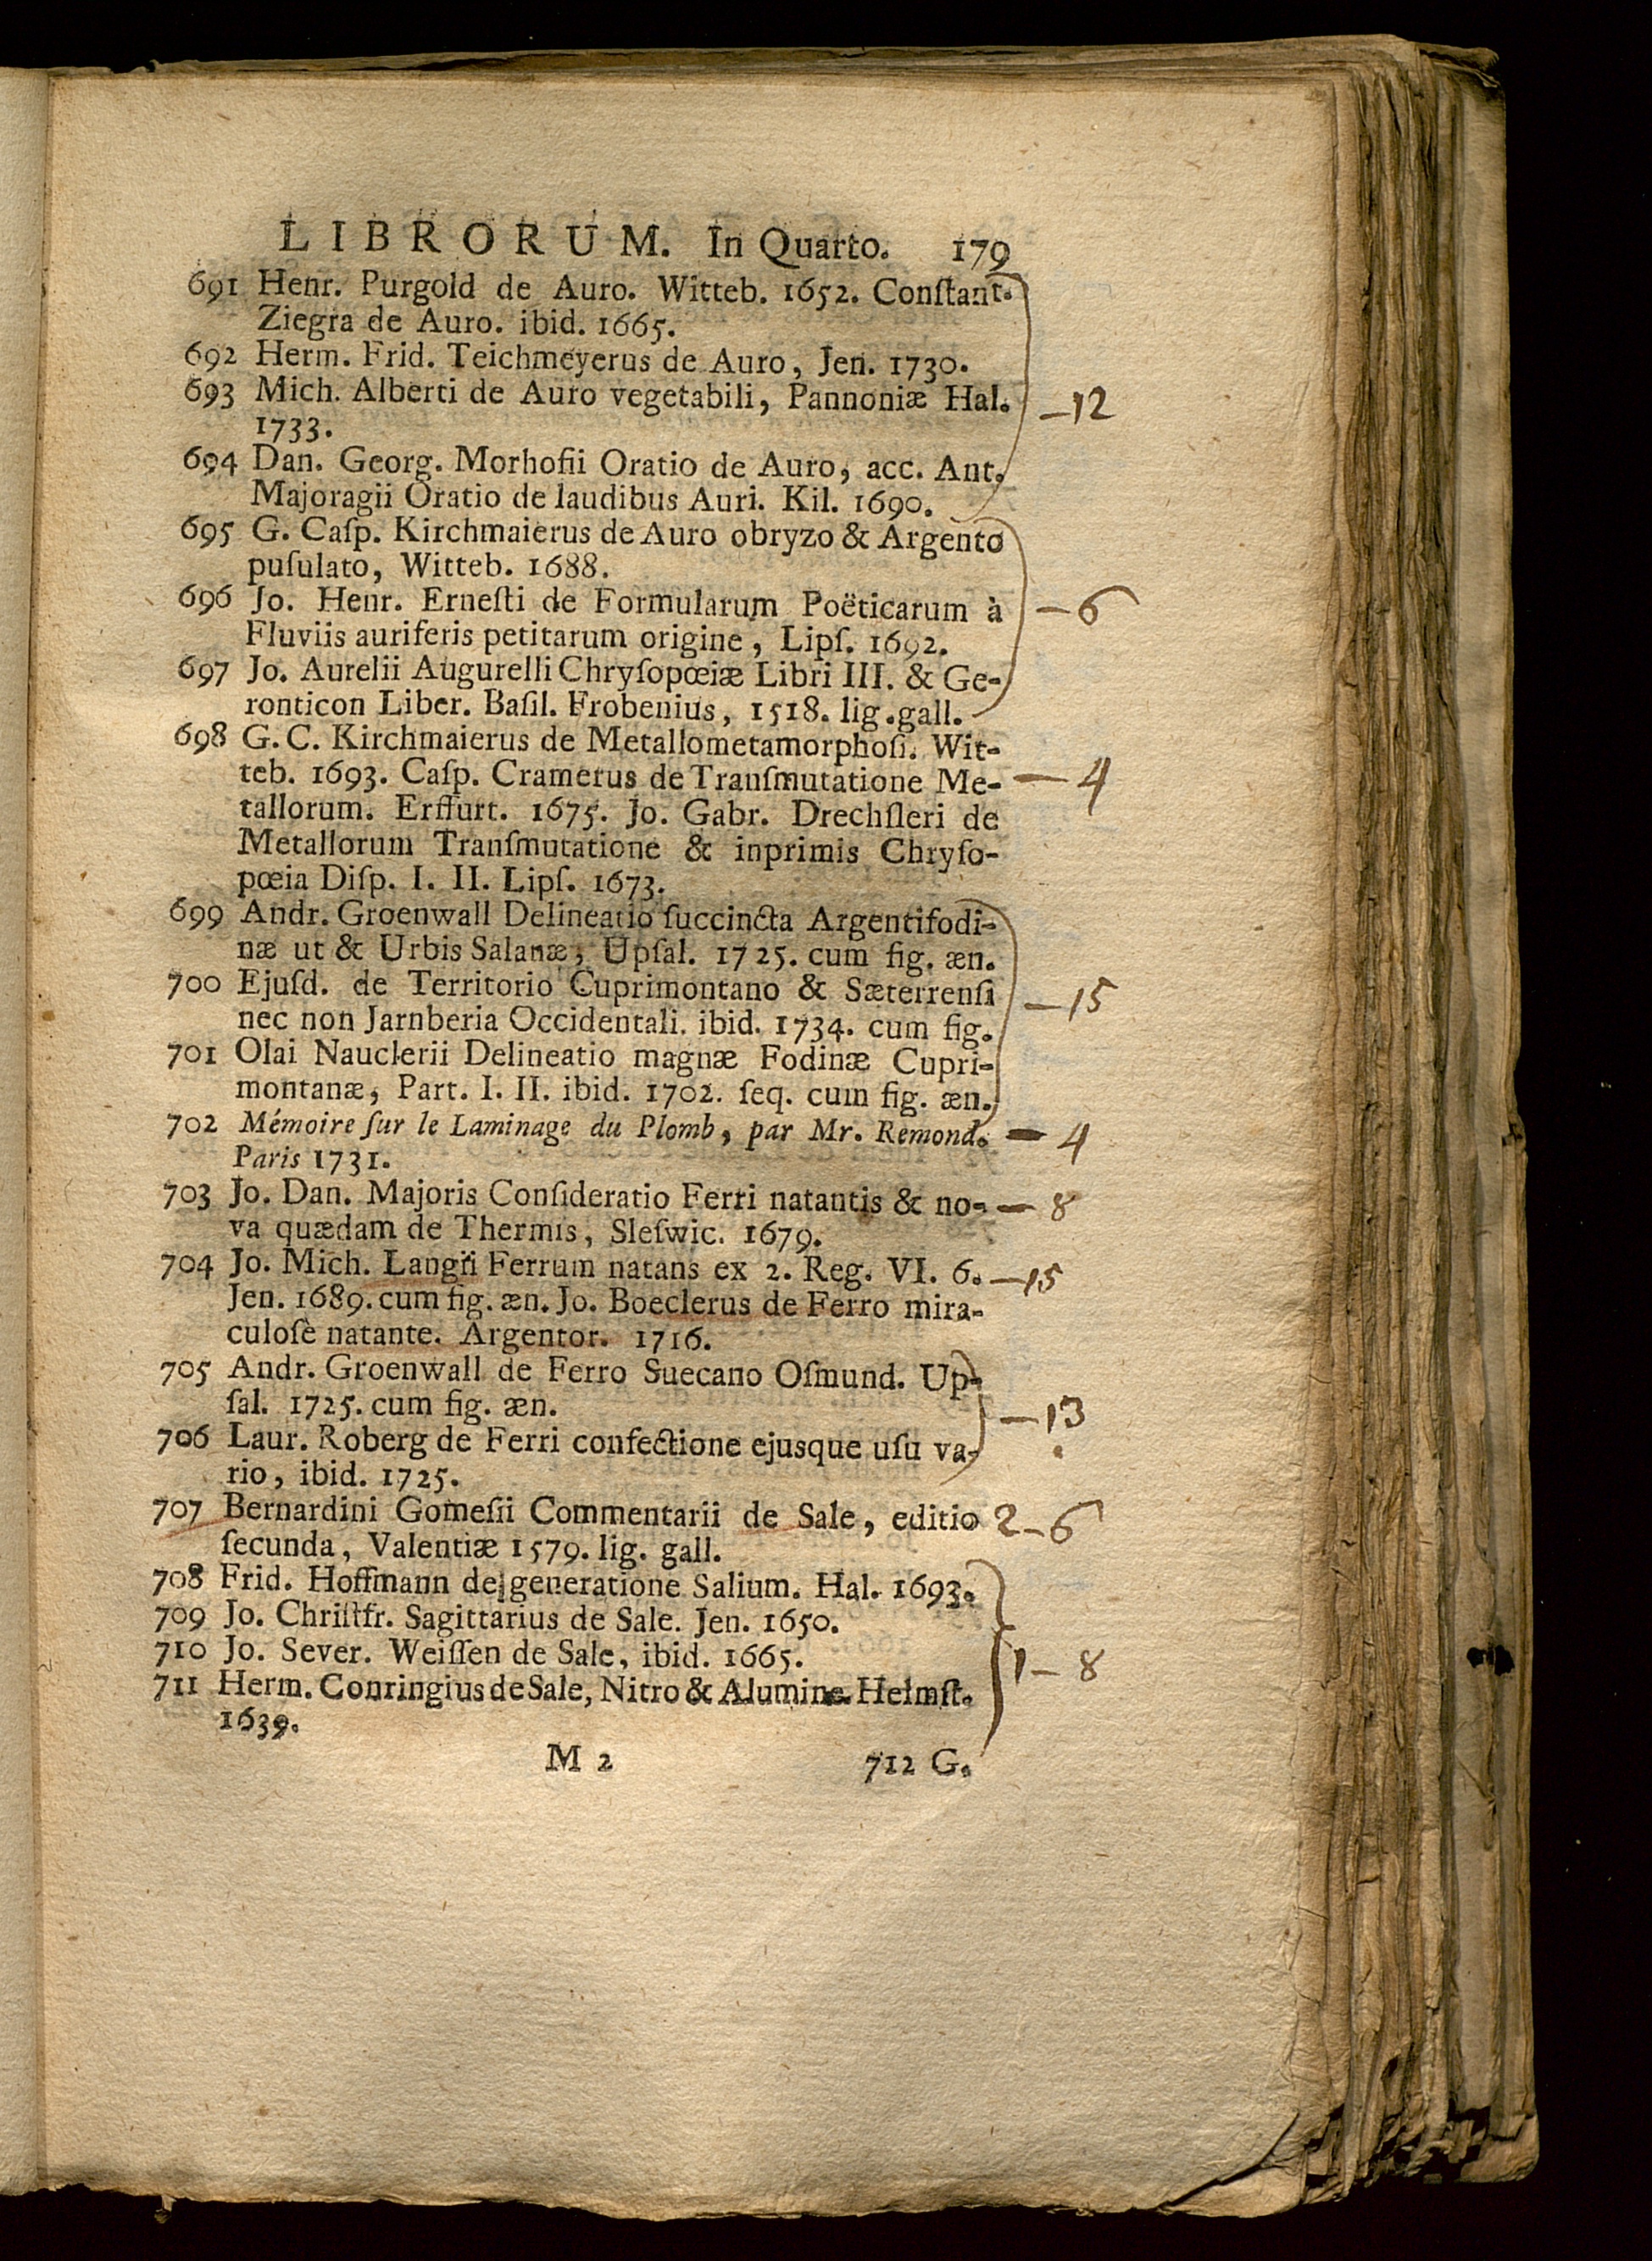 LIBRORUM. In Quarto. 179
691 Henr. Purgold de Auro. Witteb. 1652. Conſtant.
Ziegra de Auro. ibid. 1665.
692 Herm. Frid. Teichmeyerus de Auro, Jen. 1730.
693 Mich. Alberti de Auro vegetabili, Pannoniæ Hal. —12
1733.
694 Dan. Georg. Morhofii Oratio de Auro, acc. Ant.
Majoragii Oratio de laudibus Auri. Kil. 1690.
695 G. Caſp. Kirchmaierus de Auro obryzo & Argento
puſulato, Witteb. 1688.
696 Jo. Henr. Erneſti de Formularum Poëticarum à —6
Fluviis auriferis petitarum origine, Lipſ. 1692.
697 Jo. Aurelii Augurelli Chryſopœiæ Libri III. & Ge-
ronticon Liber. Baſil. Frobenius, 1518. lig. gall.
698 G. C. Kirchmaierus de Metallometamorphoſi. Wit-
teb. 1693. Caſp. Cramerus de Tranſmutatione Me- — 4
tallorum. Erffurt. 1675. Jo. Gabr. Drechſleri de
Metallorum Tranſmutatione & inprimis Chryſo-
pœia Diſp. I. II. Lipſ. 1673.
699 Andr. Groenwall Delineatio ſuccincta Argentifodi-
næ ut & Urbis Salanæ, Upſal. 1725. cum fig. æn.
700 Ejuſd. de Territorio Cuprimontano & Sæterrenſi —15
nec non Jarnberia Occidentali. ibid. 1734. cum fig.
701 Olai Nauclerii Delineatio magnæ Fodinæ Cupri-
montanæ, Part. I. II. ibid. 1702. ſeq. cum fig. æn.
702 Mémoire ſur le Laminage du Plomb, par Mr. Remond. — 4
Paris 1731.
703 Jo. Dan. Majoris Conſideratio Ferri natantis & no- — 8
va quædam de Thermis, Sleſwic. 1679.
704 Jo. Mich. Langii Ferrum natans ex 2. Reg. VI. 6. —15
Jen. 1689. cum fig. æn. Jo. Boeclerus de Ferro mira-
culoſè natante. Argentor. 1716.
705 Andr. Groenwall de Ferro Suecano Oſmund. Up-
ſal. 1725. cum fig. æn. —13
706 Laur. Roberg de Ferri confectione ejusque uſu va-
rio, ibid. 1725.
707 Bernardini Gomeſii Commentarii de Sale, editio 2—6
ſecunda, Valentiæ 1579. lig. gall.
708 Frid. Hoffmann de generatione Salium. Hal. 1693.
709 Jo. Chriſtfr. Sagittarius de Sale. Jen. 1650.
710 Jo. Sever. Weiſſen de Sale, ibid. 1665. 1—8
711 Herm. Conringius de Sale, Nitro & Alumine. Helmſt.
1639.
M 2 712 G.